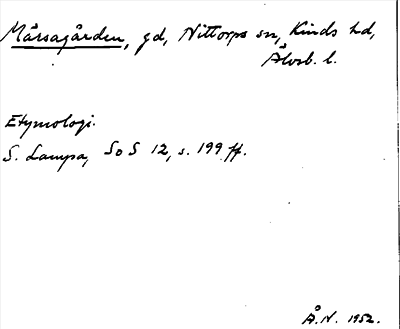 Mårsagården, gd, Nittorps sn, Kinds hd,
Älvsb. l.
Etymologi.
S. Lampa, SoS 12, s. 199 ff.
Å.N. 1952.